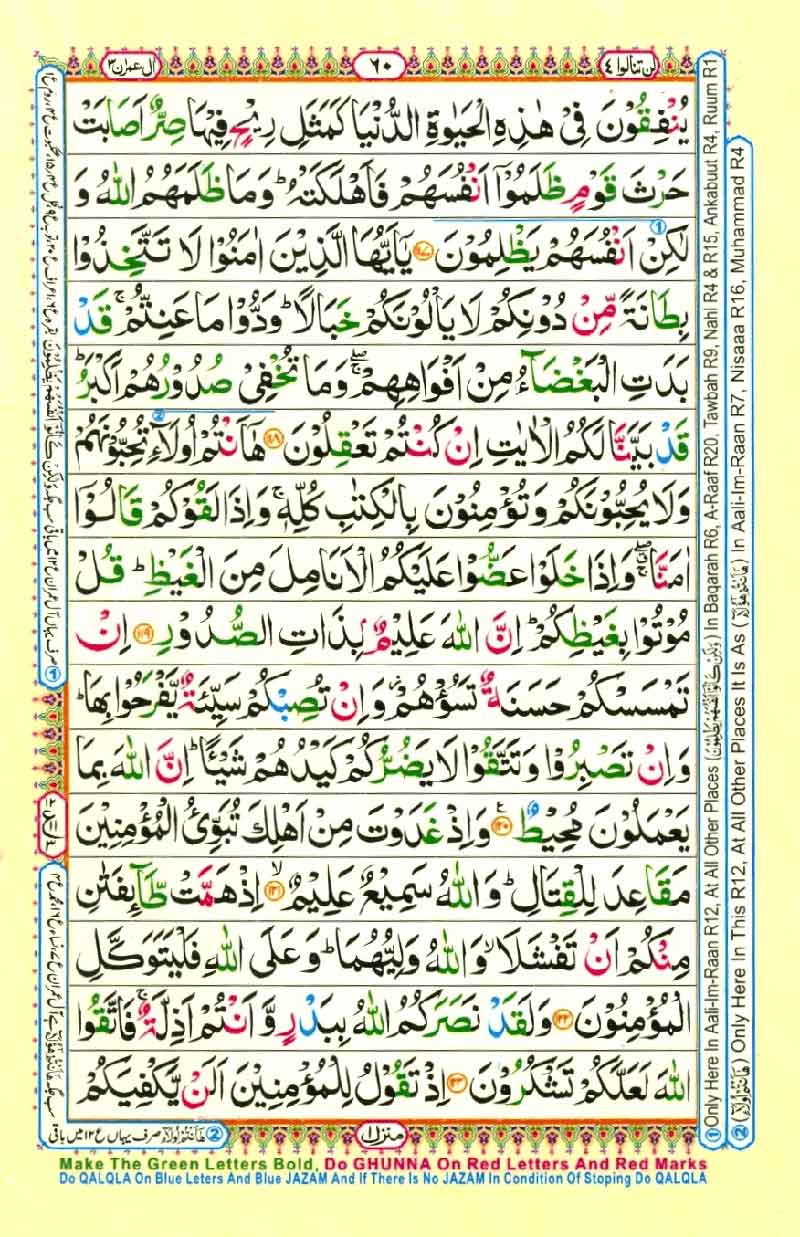 لن تنالوا ٤
٦٠
اٰل عمرٰن ٣
يُنْفِقُوْنَ فِىْ هٰذِهِ الْحَيٰوةِ الدُّنْيَا كَمَثَلِ رِيْحٍ فِيْهَا صِرٌّ اَصَابَتْ
حَرْثَ قَوْمٍ ظَلَمُوْۤا اَنْفُسَهُمْ فَاَهْلَكَتْهُ ؕ وَمَا ظَلَمَهُمُ اللّٰهُ وَ
لٰكِنْ اَنْفُسَهُمْ يَظْلِمُوْنَ ﴿۱۱۷﴾ يٰۤاَيُّهَا الَّذِيْنَ اٰمَنُوْا لَا تَتَّخِذُوْا
بِطَانَةً مِّنْ دُوْنِكُمْ لَا يَاْلُوْنَكُمْ خَبَالًا ؕ وَدُّوْا مَا عَنِتُّمْ ۚ قَدْ
بَدَتِ الْبَغْضَآءُ مِنْ اَفْوَاهِهِمْ ۖۚ وَمَا تُخْفِىْ صُدُوْرُهُمْ اَكْبَرُ ؕ
قَدْ بَيَّنَّا لَكُمُ الْاٰيٰتِ اِنْ كُنْتُمْ تَعْقِلُوْنَ ﴿۱۱۸﴾ هٰۤاَنْتُمْ اُولَآءِ تُحِبُّوْنَهُمْ
وَلَا يُحِبُّوْنَكُمْ وَتُؤْمِنُوْنَ بِالْكِتٰبِ كُلِّهٖ ۚ وَاِذَا لَقُوْكُمْ قَالُوْۤا
اٰمَنَّا ۖۚ وَاِذَا خَلَوْا عَضُّوْا عَلَيْكُمُ الْاَنَامِلَ مِنَ الْغَيْظِ ؕ قُلْ
مُوْتُوْا بِغَيْظِكُمْ ؕ اِنَّ اللّٰهَ عَلِيْمٌۢ بِذَاتِ الصُّدُوْرِ ﴿۱۱۹﴾ اِنْ
تَمْسَسْكُمْ حَسَنَةٌ تَسُؤْهُمْ ۫ وَاِنْ تُصِبْكُمْ سَيِّئَةٌ يَّفْرَحُوْا بِهَا ؕ
وَاِنْ تَصْبِرُوْا وَتَتَّقُوْا لَا يَضُرُّكُمْ كَيْدُهُمْ شَيْـًٔا ؕ اِنَّ اللّٰهَ بِمَا
يَعْمَلُوْنَ مُحِيْطٌ ﴿۱۲۰﴾ وَاِذْ غَدَوْتَ مِنْ اَهْلِكَ تُبَوِّئُ الْمُؤْمِنِيْنَ
مَقَاعِدَ لِلْقِتَالِ ؕ وَاللّٰهُ سَمِيْعٌ عَلِيْمٌ ﴿۱۲۱﴾ اِذْ هَمَّتْ طَّآئِفَتٰنِ
مِنْكُمْ اَنْ تَفْشَلَا ۙ وَاللّٰهُ وَلِيُّهُمَا ؕ وَعَلَى اللّٰهِ فَلْيَتَوَكَّلِ
الْمُؤْمِنُوْنَ ﴿۱۲۲﴾ وَلَقَدْ نَصَرَكُمُ اللّٰهُ بِبَدْرٍ وَّاَنْتُمْ اَذِلَّةٌ ۚ فَاتَّقُوا
اللّٰهَ لَعَلَّكُمْ تَشْكُرُوْنَ ﴿۱۲۳﴾ اِذْ تَقُوْلُ لِلْمُؤْمِنِيْنَ اَلَنْ يَّكْفِيَكُمْ
منزل ١
Make The Green Letters Bold, Do GHUNNA On Red Letters And Red Marks
Do QALQLA On Blue Leters And Blue JAZAM And If There Is No JAZAM In Condition Of Stoping Do QALQLA
① Only Here In Aali-Im-Raan R12, At All Other Places (وَلٰكِنْ كَانُوْا اَنْفُسَهُمْ يَظْلِمُوْنَ) In Baqarah R6, A-Raaf R20, Tawbah R9, Nahl R4 & R15, Ankabuut R4, Ruum R1
② (هٰۤاَنْتُمْ اُولَآءِ) Only Here In This R12, At All Other Places It Is As (هٰۤاَنْتُمْ هٰٓؤُلَآءِ) In Aali-Im-Raan R7, Nisaaa R16, Muhammad R4
② هٰۤاَنْتُمْ اُولَآءِ صرف یہاں ع ١٢ میں باقی